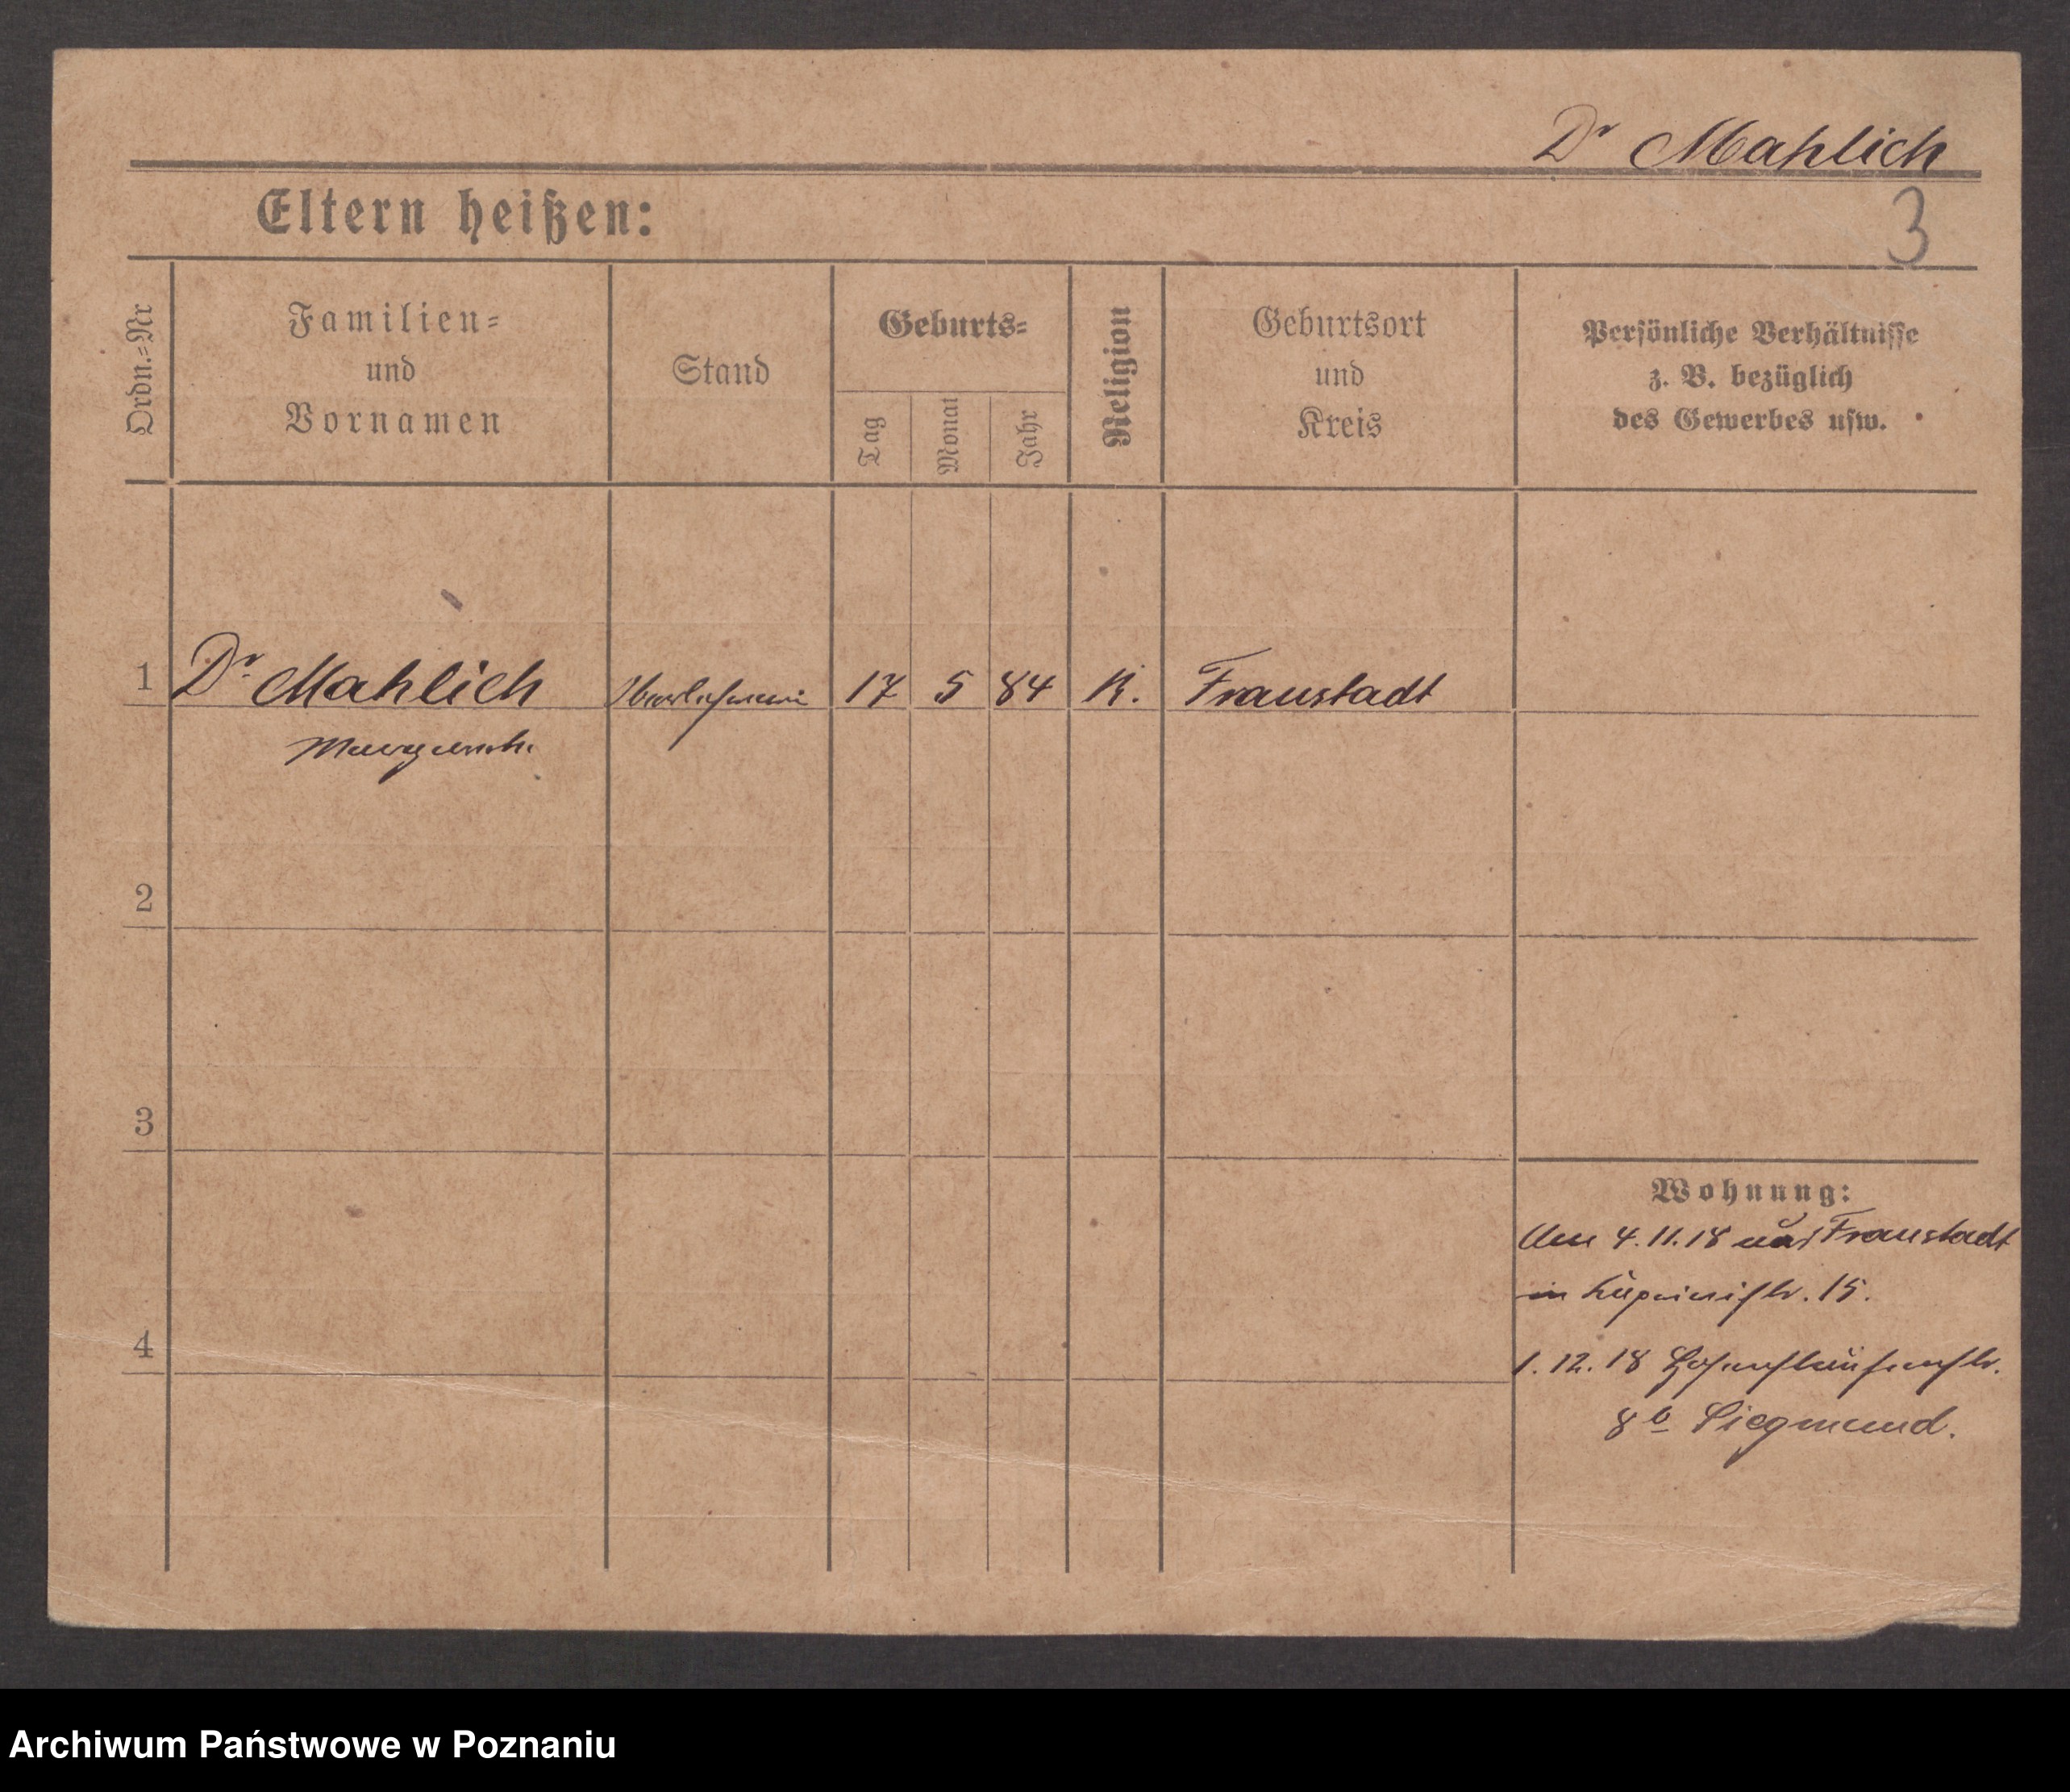 Dr Mahlich
Eltern heißen:
3
Ordn.=Nr
Familien=
und
Vornamen
Stand
Geburts=
Tag
Monat
Jahr
Religion
Geburtsort
und
Kreis
Persönliche Verhältnisse
z. B. bezüglich
des Gewerbes usw.
1 Dr. Mahlich Oberlehrerin 17 5 84 K. Fraustadt
Margarethe
2
3
4
Wohnung:
4.11.18 aus Fraustadt
in 15.
1.12.18 Hohenstaufenstr.
8b Siegmund.
Archiwum Państwowe w Poznaniu